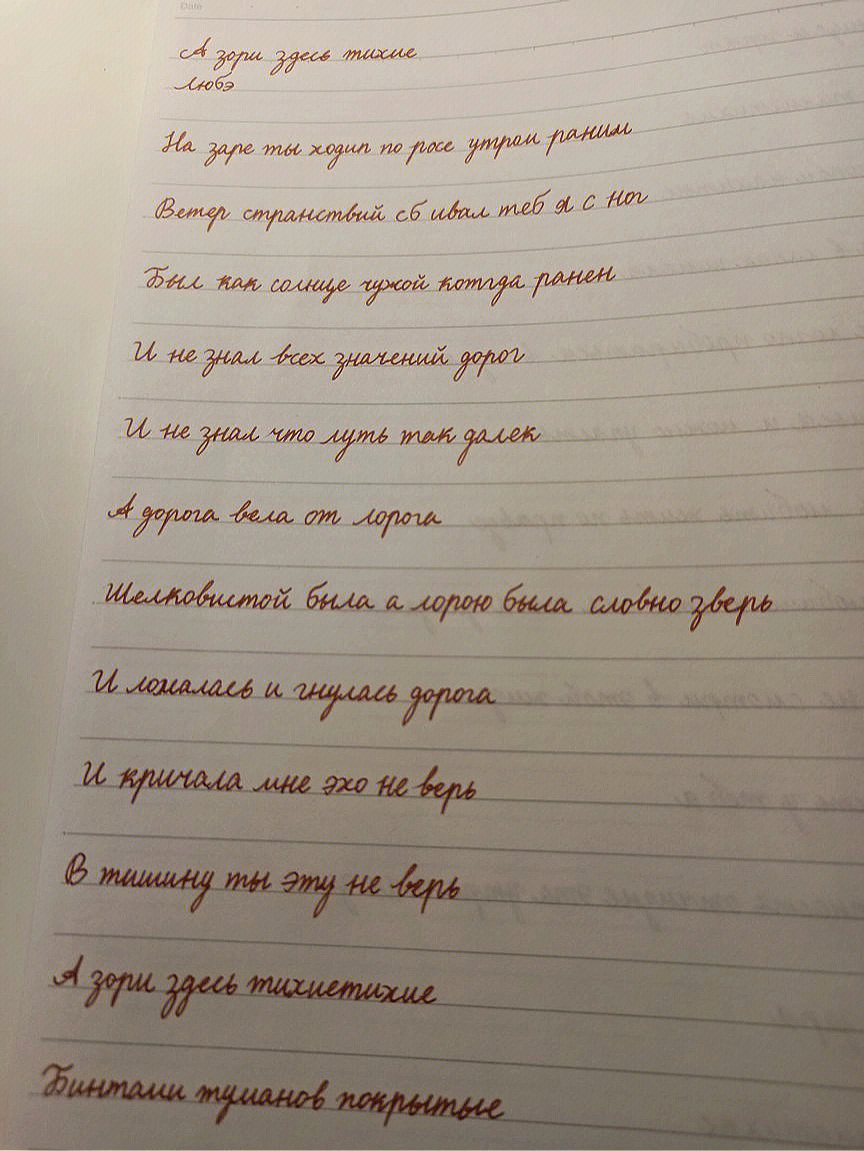 Date
А зори здесь тихие
Любэ
На заре ты ходил по росе утром раним
Ветер странствий сбивал тебя с ног
Был как солнце чужой котгда ранен
И не знал всех значений дорог
И не знал что луть так далек
А дорога вела от лорога
Шелковистой была а лорою была словно зверь
И ломалась и гнулась дорога
И кричала мне эхо не верь
В тишину ты эту не верь
А зори здесь тихиетихие
Бинтами туманов покрытые